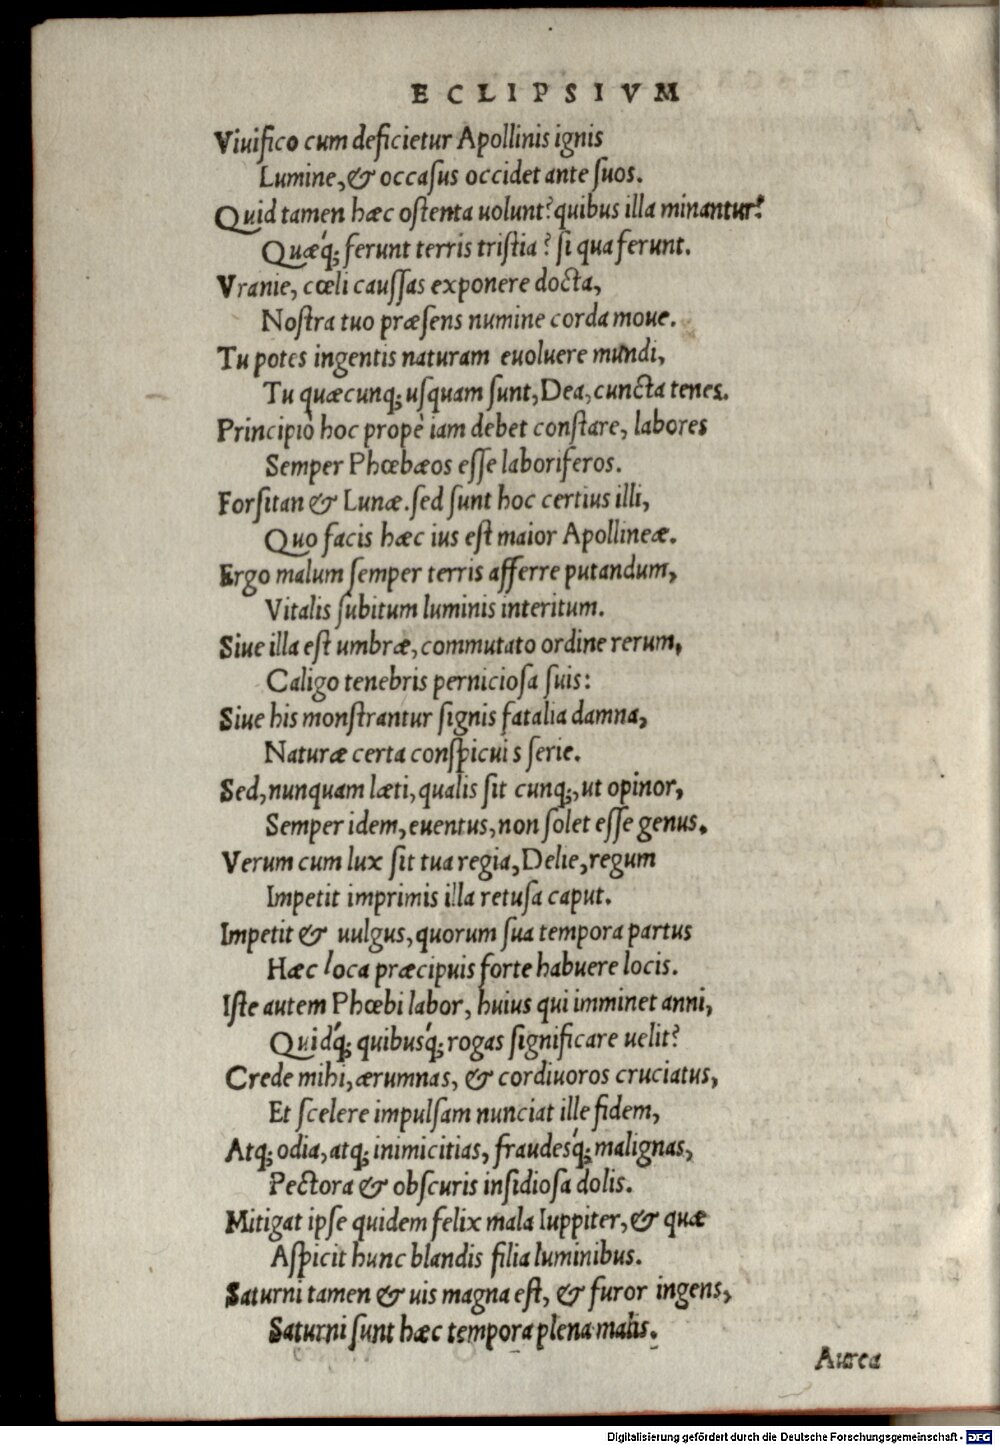 ECLIPSIVM
Viuifico cum deficietur Apollinis ignis
Lumine, & occaſus occidet ante ſuos.
Quid tamen hæc oſtenta uolunt? quibus illa minantur?
Quæq́; ferunt terris triſtia? ſi qua ferunt.
Vranie, cœli cauſſas exponere docta,
Noſtra tuo præſens numine corda moue.
Tu potes ingentis naturam euoluere mundi,
Tu quæcunq; uſquam ſunt, Dea, cuncta tenes.
Principiò hoc propè iam debet conſtare, labores
Semper Phœbæos eſſe laboriferos.
Forſitan & Lunæ. ſed ſunt hoc certius illi,
Quo facis hæc ius eſt maior Apollineæ.
Ergo malum ſemper terris afferre putandum,
Vitalis ſubitum luminis interitum.
Siue illa eſt umbræ, commutato ordine rerum,
Caligo tenebris pernicioſa ſuis:
Siue his monſtrantur ſignis fatalia damna,
Naturæ certa conſpicui s ſerie.
Sed, nunquam læti, qualis ſit cunq;, ut opinor,
Semper idem, euentus, non ſolet eſſe genus.
Verum cum lux ſit tua regia, Delie, regum
Impetit imprimis illa retuſa caput.
Impetit & uulgus, quorum ſua tempora partus
Hæc loca præcipuis forte habuere locis.
Iſte autem Phœbi labor, huius qui imminet anni,
Quidq́; quibusq́; rogas ſignificare uelit?
Crede mihi, ærumnas, & cordiuoros cruciatus,
Et ſcelere impulſam nunciat ille fidem,
Atq; odia, atq; inimicitias, fraudesq́; malignas,
Pectora & obſcuris inſidioſa dolis.
Mitigat ipſe quidem felix mala Iuppiter, & quæ
Aſpicit hunc blandis filia luminibus.
Saturni tamen & uis magna eſt, & furor ingens,
Saturni ſunt hæc tempora plena malis.
Aurea
Digitalisierung gefördert durch die Deutsche Forschungsgemeinschaft - DFG